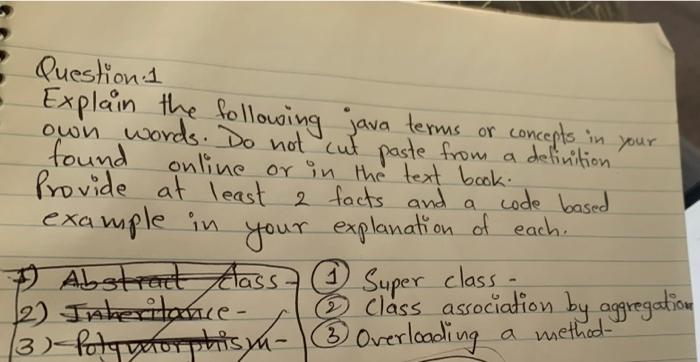 Question.1
Explain the following java terms or concepts in your
own words. Do not cut paste from a definition
found online or in the text book.
Provide at least 2 facts and a code based
example in your explanation of each.
1) Abstract class - ① Super class -
2) Inheritance - ② Class association by aggregation
3) Polymorphism - ③ Overloading a method -